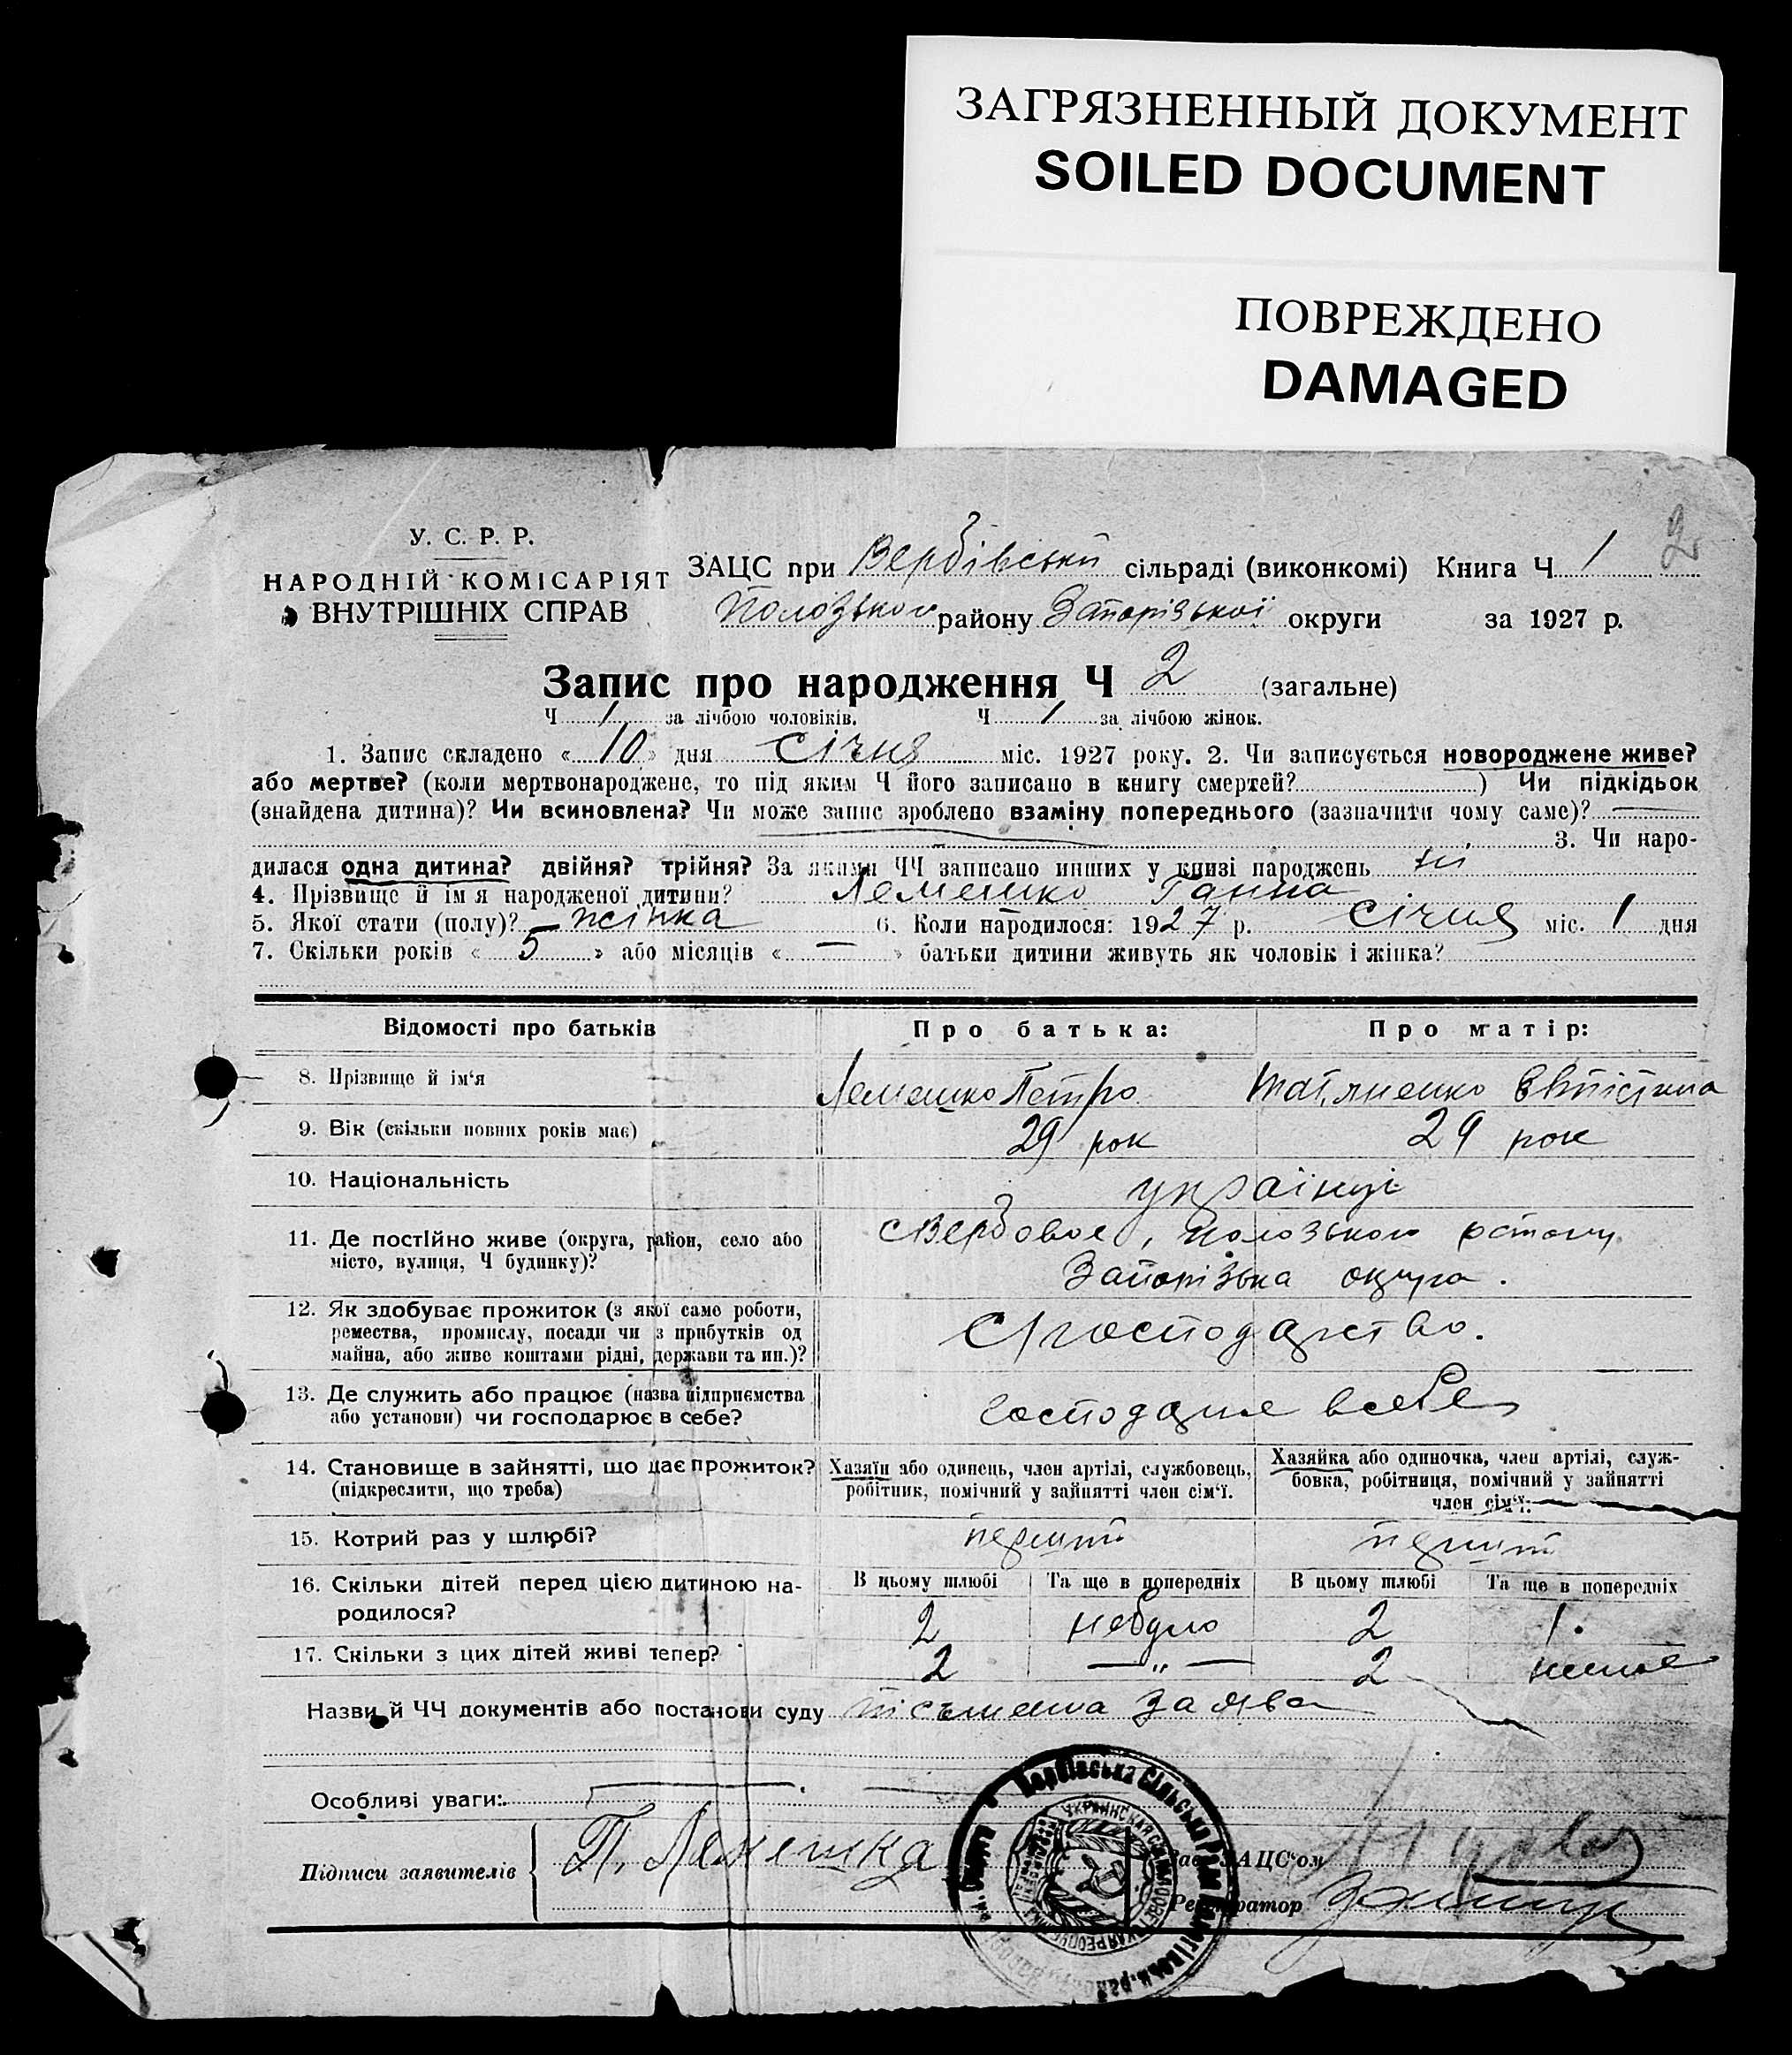 ЗАГРЯЗНЕННЫЙ ДОКУМЕНТ
SOILED DOCUMENT
ПОВРЕЖДЕНО
DAMAGED
2
У. С. Р. Р.
НАРОДНІЙ КОМІСАРІЯТ
ВНУТРІШНІХ СПРАВ
ЗАЦС при Вербівській сільраді (виконкомі) Книга Ч 1
Полозького району Запорізької округи за 1927 р.
Запис про народження Ч 2 (загальне)
Ч 1 за лічбою чоловіків. Ч 1 за лічбою жінок.
1. Запис складено « 10 » дня Січня міс. 1927 року. 2. Чи записується новороджене живе?
або мертве? (коли мертвонароджене, то під яким Ч його записано в книгу смертей? ) Чи підкідьок
(знайдена дитина)? Чи всиновлена? Чи може запис зроблено взаміну попереднього (зазначити чому саме)? —
3. Чи наро-
дилася одна дитина? двійня? трійня? За якими ЧЧ записано инших у книзі народжень ні
4. Прізвище й ім'я народженої дитини? Лемешко Ганна
5. Якої стати (полу)? жінка 6. Коли народилося: 1927 р. Січня міс. 1 дня
7. Скільки років « 5 » або місяців « — » батьки дитини живуть як чоловік і жінка?
Відомості про батьків Про батька: Про матір:
8. Прізвище й ім'я Лемешко Петро
9. Вік (скільки повних років має) 29 рок 29 рок
10. Національність українці
11. Де постійно живе (округа, район, село або
місто, вулиця, Ч будинку)?
с Вербове, Полозького
Запорізька округа.
12. Як здобуває прожиток (з якої саме роботи,
ремества, промислу, посади чи з прибутків од
майна, або живе коштами рідні, держави та ин.)?
С/господарство.
13. Де служить або працює (назва підприємства
або установи) чи господарює в себе?
Господарює в себе
14. Становище в зайнятті, що дає прожиток?
(підкреслити, що треба)
Хазяїн або одинець, член артілі, службовець,
робітник, помічний у зайнятті член сім'ї.
Хазяйка або одиночка, член артілі, служ-
бовка, робітниця, помічний у зайнятті
член сім'ї.
15. Котрий раз у шлюбі? перший перший
16. Скільки дітей перед цією дитиною на-
родилося?
В цьому шлюбі Та ще в попередніх В цьому шлюбі Та ще в попередніх
2 небуло 2 1.
17. Скільки з цих дітей живі тепер? 2 — „ — 2 немає
Назви й ЧЧ документів або постанови суду письменна заява
Особливі уваги:
Підписи заявителів П. Лемешка
Зав. ЗАЦС'ом
Реєстратор
Вербівська Сільська Рада
УКРАИНСКАЯ